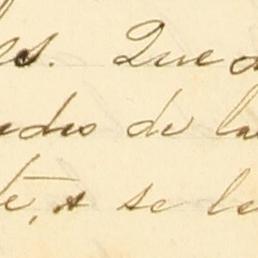 es. Que
edes de la
te, se le